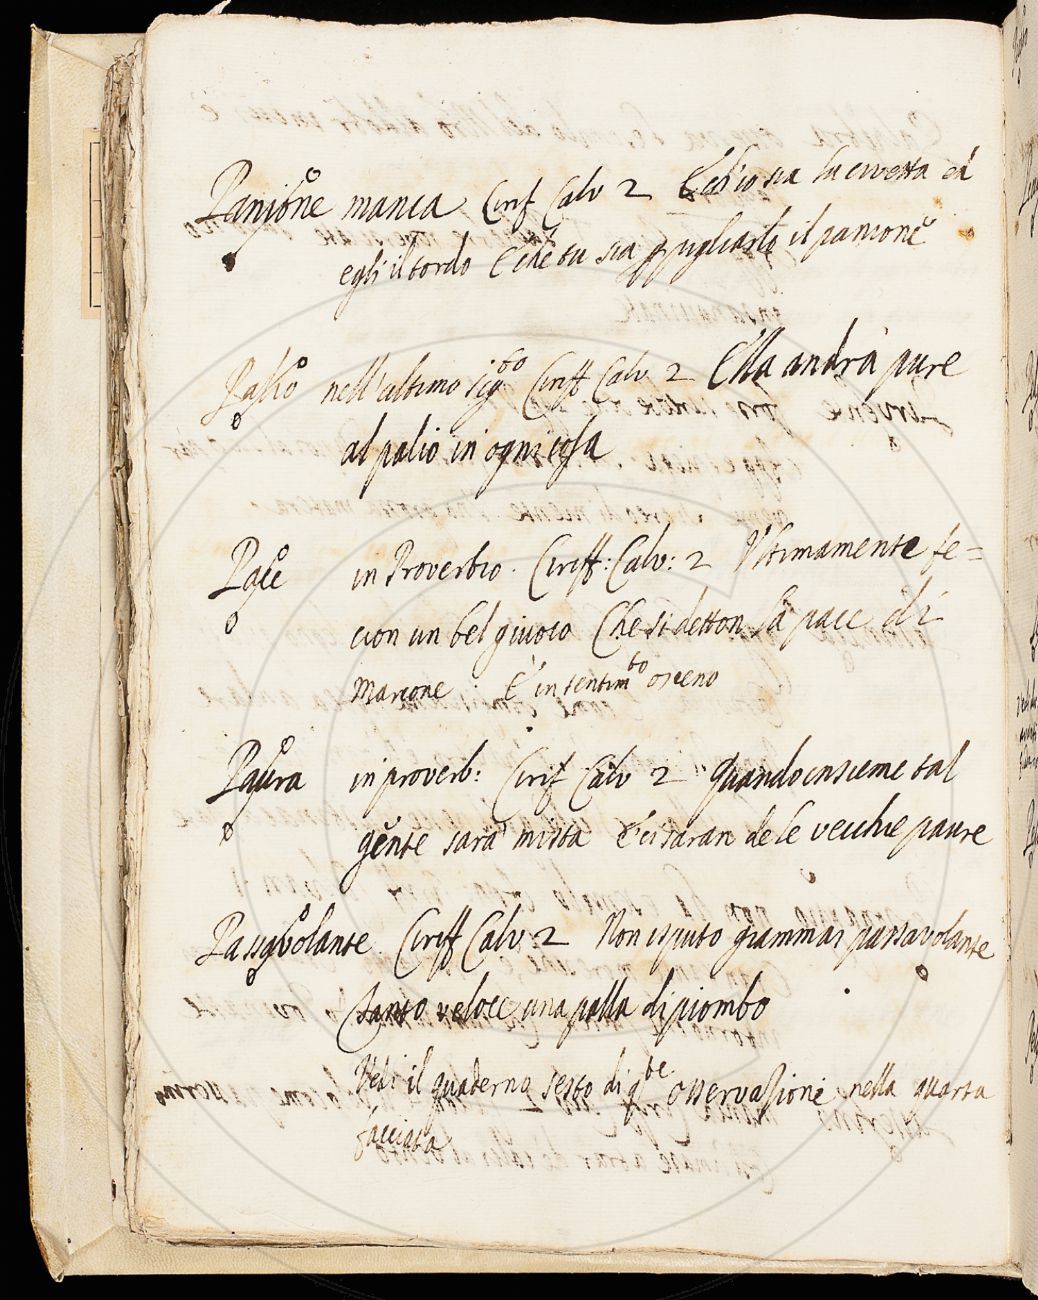 Panione manca Cirif Calv 2 Ch'io sia la civetta ed
egli il tordo E che tu sia p pigliarlo il panione
Palio nell'ultimo sig.to Ciriff Calv. 2 Ella andrà pure
al palio in ogni cosa
Pace in Proverbio. Ciriff: Calv: 2 Ultimamente fe=
cion un bel giuoco Che si detton la pace di
Marcone. È in sentim.to osceno
Paura in proverb: Cirif Calv 2 Quando insieme tal
gente sarà mista E' ci saran de le vecchie paure
Passavolante. Ciriff Calv: 2 Non ispinto giammai passavolante
Tanto veloce una palla di piombo
Vedi il quaderno sesto di q.te osservazioni nella quarta
facciata